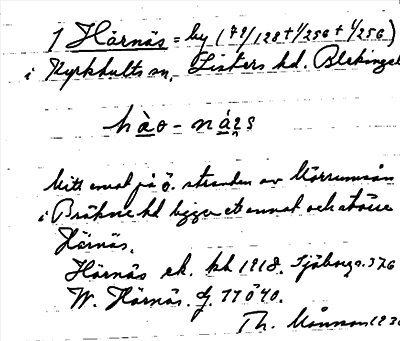 1 Härnäs = by (79/128 + 1/256 + 1/256)
i Kyrkhults sn, Listers hd. Blekinge
hào - nàs
Mitt emot på ö. stranden av Mörrumsån
i Bräkne hd ligger et annat och större
Härnäs.
Härnäs ek. kb 1918. Sjöborg s. 376
W. Härnäs. J. 11 Ö 40.
Th. Månsson 193